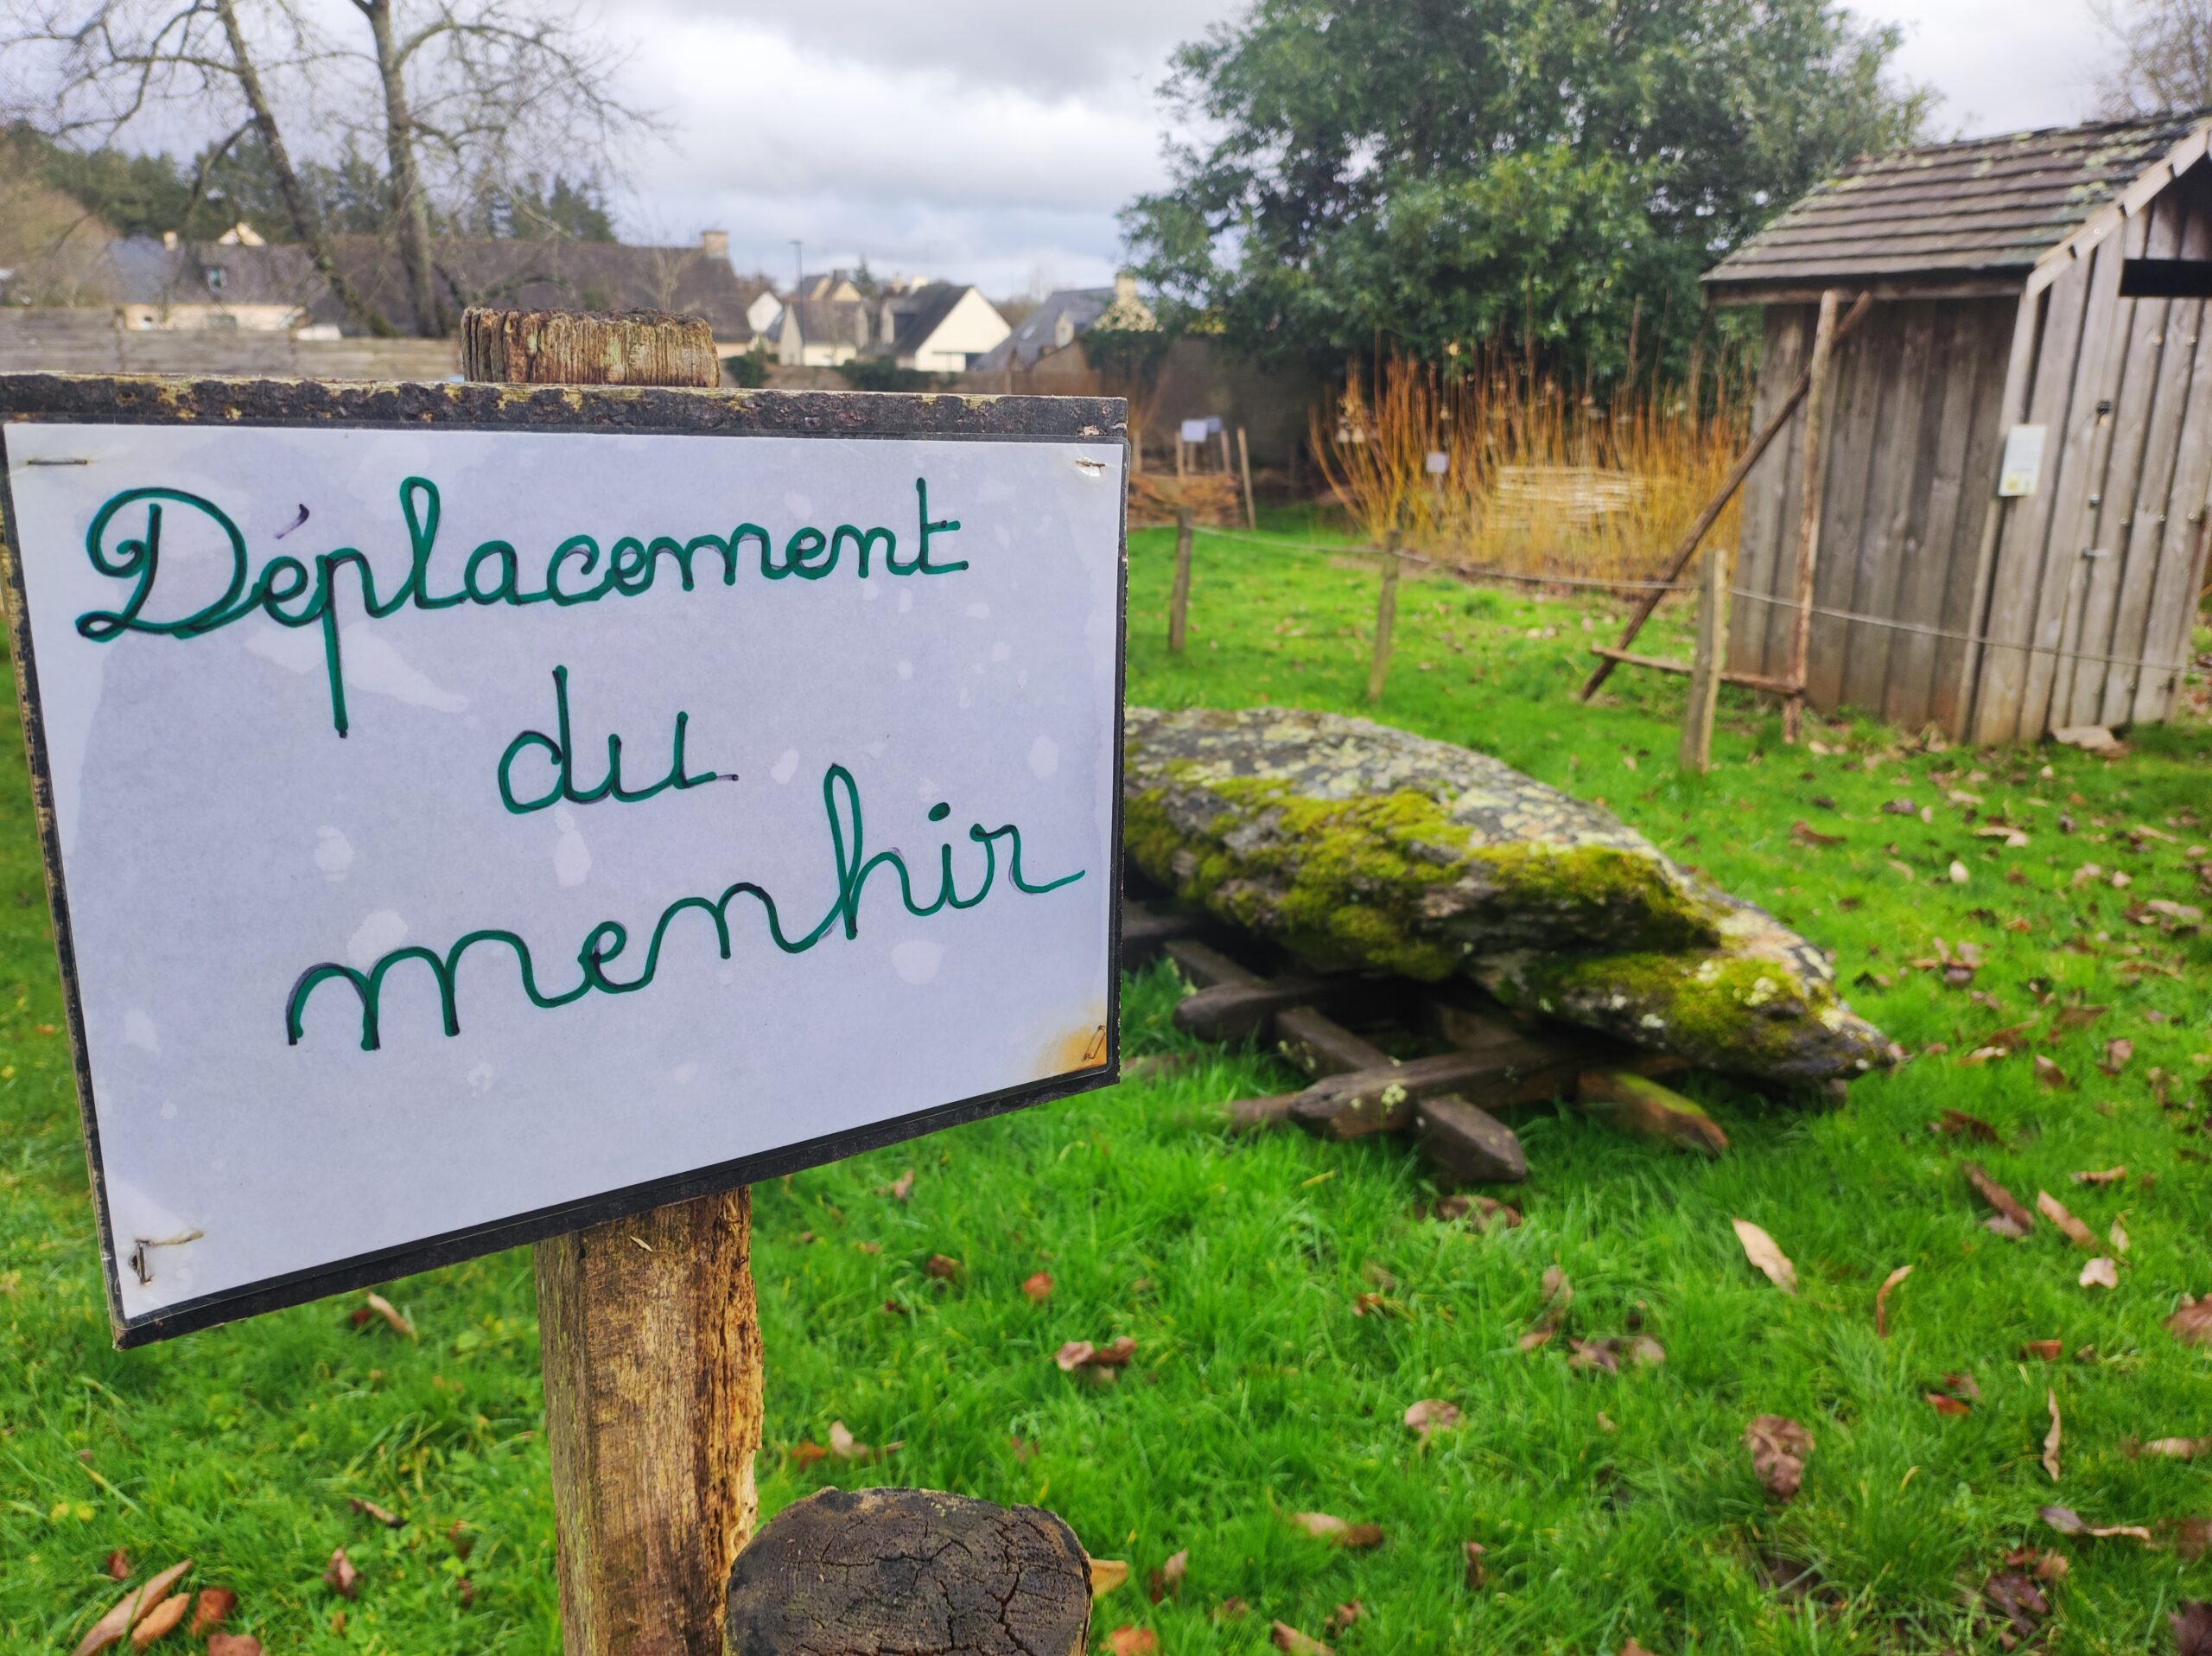 Déplacement
du
menhir